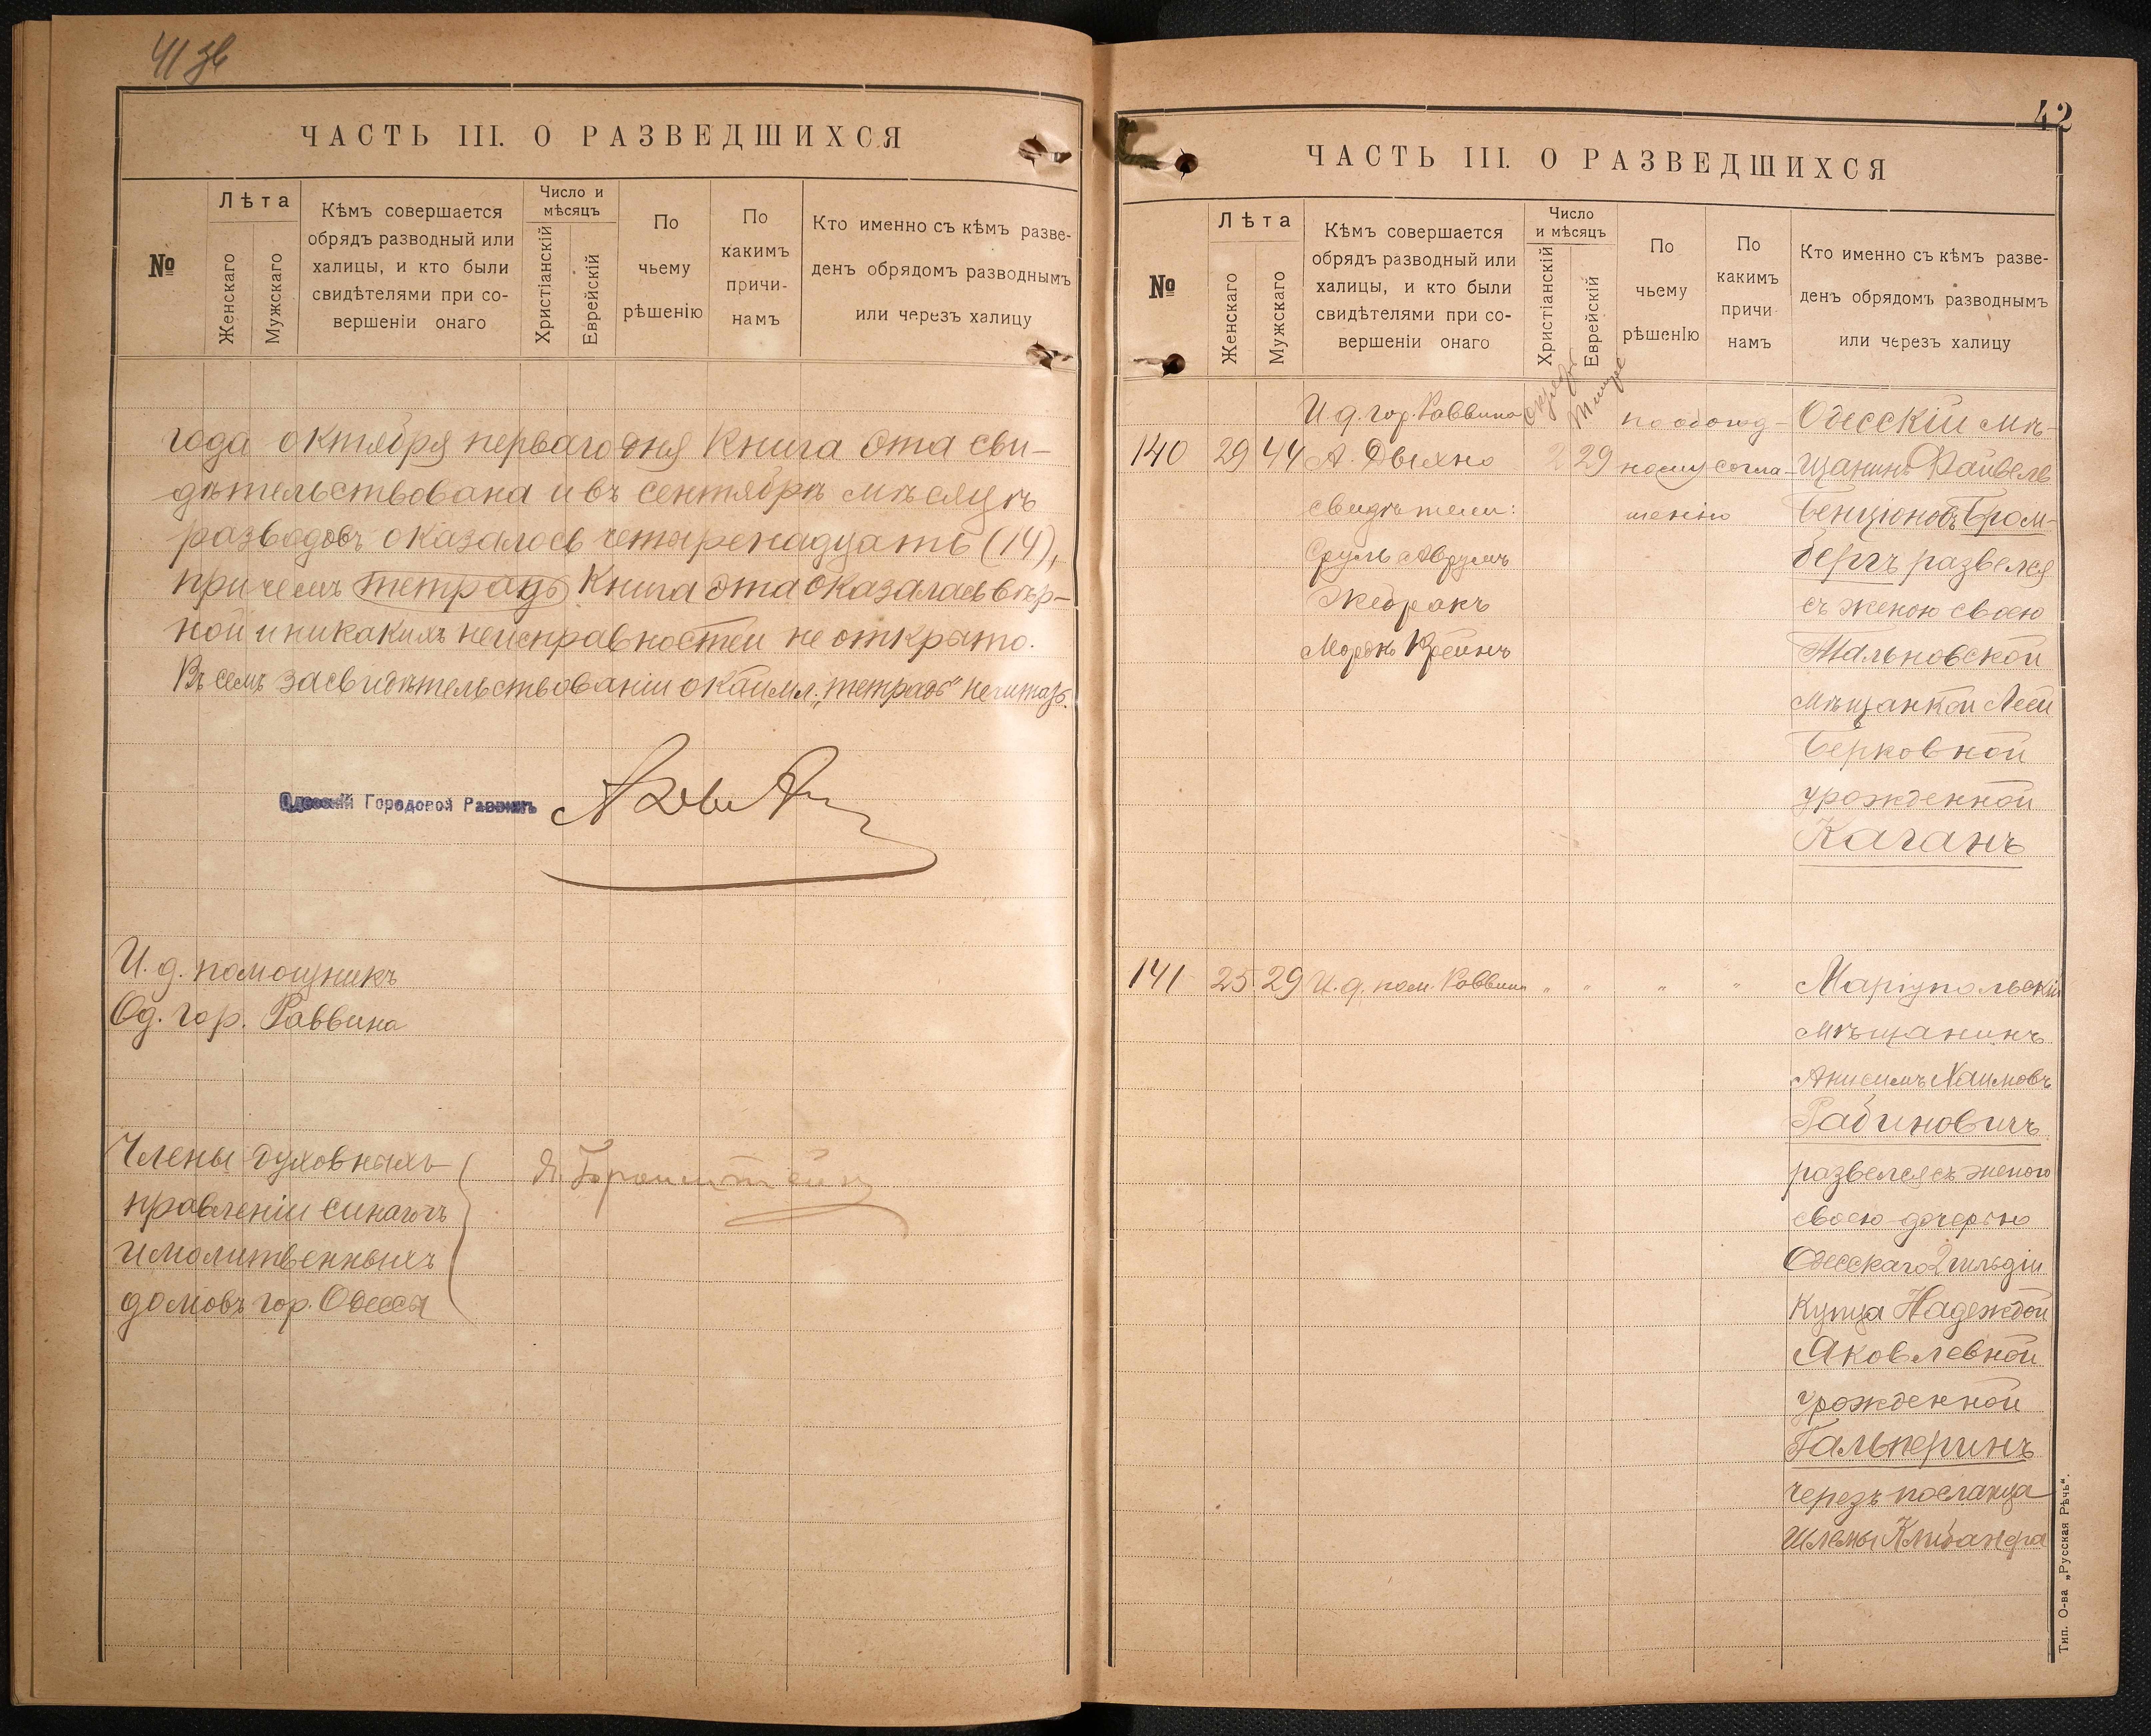 41 зв
ЧАСТЬ III. О РАЗВЕДШИХСЯ
№
Лѣта
Женскаго
Мужскаго
Кѣмъ совершается
обрядъ разводный или
халицы, и кто были
свидѣтелями при со-
вершеніи онаго
Число и
мѣсяцъ
Христіанскій
Еврейскій
По
чьему
рѣшенію
По
какимъ
причи-
намъ
Кто именно съ кѣмъ разве-
денъ обрядомъ разводнымъ
или черезъ халицу
года октября перваго дня книга эта сви-
дѣтельствована и въ сентябрѣ мѣсяцѣ
разводовъ оказалось четыренадцать (14),
при чемъ тетрадь книга эта оказалась вѣр-
ной и никакихъ неисправностей не открыто.
Въ семъ засвидѣтельствованіи окаймл. „тетрадь" не читать.
Одесскій Городовой Раввинъ
И. д. помощникъ
Од. гор. Раввина
Члены духовныхъ
правленій синагогъ
и молитвенныхъ
домовъ гор. Одессы
Я. Бронштейнъ
42
ЧАСТЬ III. О РАЗВЕДШИХСЯ
№
Лѣта
Женскаго
Мужскаго
Кѣмъ совершается
обрядъ разводный или
халицы, и кто были
свидѣтелями при со-
вершеніи онаго
Число
и мѣсяцъ
Христіанскій
Еврейскій
По
чьему
рѣшенію
По
какимъ
причи-
намъ
Кто именно съ кѣмъ разве-
денъ обрядомъ разводнымъ
или черезъ халицу
140 29 44
И. д. гор. Раввина
А. Дыхно
свидѣтели:
Сруль Аврумъ
Жебракъ
Мордко Крейнъ
Октября
Тишре
2 29
по обоюд-
ному согла-
шенію
Одесскій мѣ-
щанинъ Файвель
Бенціоновъ Бром-
бергъ развелся
съ женою своею
Тальновской
мѣщанкой Леей
Берковной
урожденной
Каганъ
141 25 29 И. д. пом. Раввина " " " "
Маріупольскій
мѣщанинъ
Анисимъ Хаимовъ
Рабиновичъ
развелся съ женою
своею дочерью
Одесскаго 2 гильдіи
купца Надеждой
Яковлевной
урожденной
Гальперинъ
черезъ посланца
Шлемы Клибанера
Тип. О-ва „Русская Рѣчь".